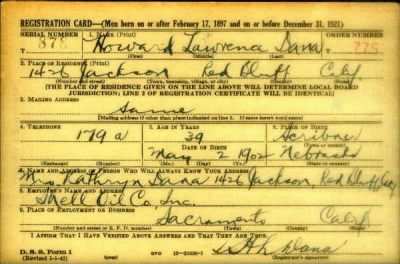 REGISTRATION CARD—(Men born on or after February 17, 1897 and on or before December 31, 1921)
SERIAL NUMBER 1. NAME (Print) ORDER NUMBER
878 Howard Lawrence Dana 775
(First) (Middle) (Last)
2. PLACE OF RESIDENCE (Print)
1426 Jackson Red Bluff Calif.
(Number and street) (Town, township, village, or city) (County) (State)
[THE PLACE OF RESIDENCE GIVEN ON THE LINE ABOVE WILL DETERMINE LOCAL BOARD
JURISDICTION; LINE 2 OF REGISTRATION CERTIFICATE WILL BE IDENTICAL]
3. MAILING ADDRESS
Same
[Mailing address if other than place indicated on line 2. If same insert word same]
4. TELEPHONE 5. AGE IN YEARS 6. PLACE OF BIRTH
179 a 39 Scribner
DATE OF BIRTH (Town or county)
May 2 1902 Nebraska
(Exchange) (Number) (Mo.) (Day) (Yr.) (State or country)
7. NAME AND ADDRESS OF PERSON WHO WILL ALWAYS KNOW YOUR ADDRESS
Mrs Kathryn Dana 1426 Jackson, Red Bluff
8. EMPLOYER'S NAME AND ADDRESS
Shell Oil Co, Inc.
9. PLACE OF EMPLOYMENT OR BUSINESS
Sacramento Calif
(Number and street or R. F. D. number) (Town) (County) (State)
I AFFIRM THAT I HAVE VERIFIED ABOVE ANSWERS AND THAT THEY ARE TRUE.
D. S. S. Form 1 GPO H L Dana
(Revised 1-1-42) (Registrant's signature)